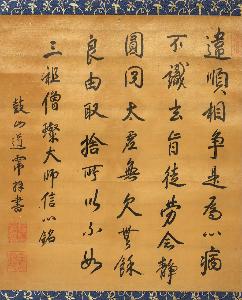 違順相争是為心病
不識玄旨徒労念静
圓同太虚無欠無餘
良由取捨所以不如
三祖僧璨大師信心銘
鼓山道霈拝書